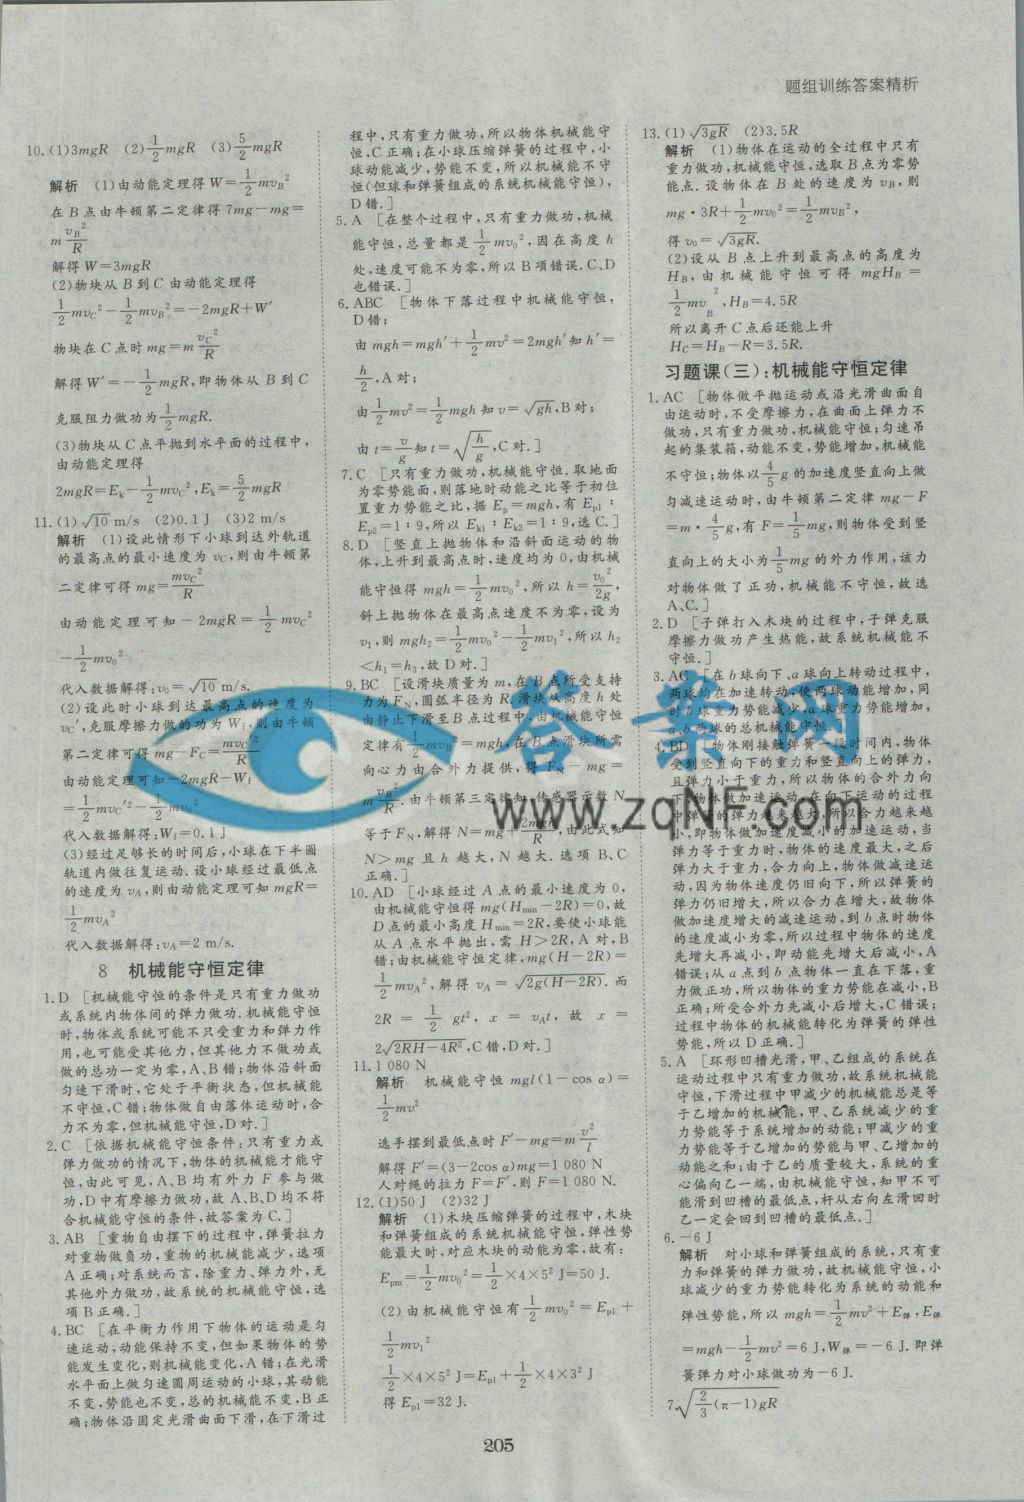 题组训练答案精析
10.(1)3mgR (2)1/2mgR (3)5/2mgR
解析 (1)由动能定理得W=1/2mv_B²
在B点由牛顿第二定律得7mg-mg=
m v_B²/R
解得W=3mgR
(2)物块从B到C由动能定理得
1/2mv_C²-1/2mv_B²=-2mgR+W′
物块在C点时mg=m v_C²/R
解得W′=-1/2mgR,即物体从B到C
克服阻力做功为1/2mgR.
(3)物块从C点平抛到水平面的过程中,
由动能定理得
2mgR=E_k-1/2mv_C²,E_k=5/2mgR
11.(1)√10 m/s (2)0.1 J (3)2 m/s
解析 (1)设此情形下小球到达外轨道
的最高点的最小速度为v_C,则由牛顿第
二定律可得mg=mv_C²/R
由动能定理可知-2mgR=1/2mv_C²
-1/2mv₀²
代入数据解得:v₀=√10 m/s.
(2)设此时小球到达最高点的速度为
v_C′,克服摩擦力做的功为W_f,则由牛顿
第二定律可得mg-F_C=mv_C′²/R
由动能定理可知-2mgR-W_f
=1/2mv_C′²-1/2mv₀²
代入数据解得:W_f=0.1 J
(3)经过足够长的时间后,小球在下半圆
轨道内做往复运动.设小球经过最低点
的速度为v_A,则由动能定理可知mgR=
1/2mv_A²
代入数据解得:v_A=2 m/s.
8 机械能守恒定律
1.D [机械能守恒的条件是只有重力做功
或系统内物体间的弹力做功.机械能守恒
时,物体或系统可能不只受重力和弹力作
用,也可能受其他力,但其他力不做功或
做的总功一定为零,A、B错;物体沿斜面
匀速下滑时,它处于平衡状态,但机械能
不守恒,C错;物体做自由落体运动时,合
力不为零,但机械能守恒,D对.]
2.C [依据机械能守恒条件:只有重力或
弹力做功的情况下,物体的机械能才能守
恒,由此可见,A、B均有外力F参与做
功,D中有摩擦力做功,故A、B、D均不符
合机械能守恒的条件,故答案为C.]
3.AB [重物自由摆下的过程中,弹簧拉力
对重物做负功,重物的机械能减少,选项
A正确;对系统而言,除重力、弹力外,无
其他外力做功,故系统的机械能守恒,选
项B正确.]
4.BC [在平衡力作用下物体的运动是匀
速运动,动能保持不变,但如果物体的势
能发生变化,则机械能变化,A错;在光滑
水平面上做匀速圆周运动的小球,其动能
不变,势能也不变,总的机械能不变,B正
确;物体沿固定光滑曲面下滑,在下滑过
程中,只有重力做功,所以物体机械能守
恒,C正确;在小球压缩弹簧的过程中,小
球动能减少,势能不变,所以机械能不守
恒(但球和弹簧组成的系统机械能守恒),
D错.]
5.A [在整个过程中,只有重力做功,机械
能守恒,总量都是1/2mv₀²,因在高度h
处,速度可能不为零,所以B项错误.C、D
也错误.]
6.ABC [物体下落过程中机械能守恒,
D错;
由mgh=mgh′+1/2mv²=2mgh′知h′=
h/2,A对;
由1/2mv²=1/2mgh知v=√gh,B对;
由t=v/g知t=√(h/g),C对.]
7.C [只有重力做功,机械能守恒.取地面
为零势能面,则落地时动能之比等于初位
置重力势能之比,据E_p=mgh,有E_p1:
E_p2=1:9,所以E_k1:E_k2=1:9,选C.]
8.D [竖直上抛物体和沿斜面运动的物
体,上升到最高点时,速度均为0,由机械
能守恒得mgh=1/2mv₀²,所以h=v₀²/2g,
斜上抛物体在最高点速度不为零,设为
v₁,则mgh₂=1/2mv₀²-1/2mv₁²,所以h₂
<h₁=h₃,故D对.]
9.BC [设滑块质量为m,在B点所受支持
力为F_N,圆弧半径为R,滑块从高度h处
由静止下滑至B点过程中,由机械能守恒
定律有1/2mv_B²=mgh,在B点滑块所需
向心力由合外力提供,得F_N-mg=
m v_B²/R.由牛顿第三定律知,传感器示数N
等于F_N,解得N=mg+2mgh/R,由此式知
N>mg且h越大,N越大.选项B、C
正确.]
10.AD [小球经过A点的最小速度为0,
由机械能守恒得mg(H_min-2R)=0,故
D点的最小高度H_min=2R,要使小球能
从A点水平抛出,需H>2R,A对,B
错;由机械能守恒定律,mg(H-2R)=
1/2mv_A²,解得v_A=√2g(H-2R).而
2R=1/2gt²,x=v_At,故x=
2√2RH-4R²,C错,D对.]
11.1 080 N
解析 机械能守恒mgl(1-cos α)=
1/2mv²
选手摆到最低点时F′-mg=m v²/l
解得F′=(3-2cos α)mg=1 080 N
人对绳的拉力F=F′,则F=1 080 N.
12.(1)50 J (2)32 J
解析 (1)木块压缩弹簧的过程中,木块
和弹簧组成的系统机械能守恒,弹性势
能最大时,对应木块的动能为零,故有:
E_pm=1/2mv₀²=1/2×4×5² J=50 J.
(2)由机械能守恒有1/2mv₀²=E_p1+
1/2mv₁²
1/2×4×5² J=E_p1+1/2×4×3² J
得E_p1=32 J.
13.(1)√3gR (2)3.5R
解析 (1)物体在运动的全过程中只有
重力做功,机械能守恒,选取B点为零势
能点.设物体在B处的速度为v_B,则
mg·3R+1/2mv₀²=1/2mv_B²,
得v₀=√3gR.
(2)设从B点上升到最高点的高度为
H_B,由机械能守恒可得mgH_B=
1/2mv_B²,H_B=4.5R
所以离开C点后还能上升
H_C=H_B-R=3.5R.
习题课(三):机械能守恒定律
1.AC [物体做平抛运动或沿光滑曲面自
由运动时,不受摩擦力,在曲面上弹力不
做功,只有重力做功,机械能守恒;匀速吊
起的集装箱,动能不变,势能增加,机械能
不守恒;物体以4/5g的加速度竖直向上做
匀减速运动时,由牛顿第二定律mg-F
=m·4/5g,有F=1/5mg,则物体受到竖
直向上的大小为1/5mg的外力作用,该力
对物体做了正功,机械能不守恒,故选
A、C.]
2.D [子弹打入木块的过程中,子弹克服
摩擦力做功产生热能,故系统机械能不
守恒.]
3.AC [在b球向下、a球向上转动过程中,
两球均在加速转动,使两球动能增加,同
时b球重力势能减少,a球重力势能增加,
a、b两球的总机械能守恒.]
4.BD [物体刚接触弹簧一段时间内,物体
受到竖直向下的重力和竖直向上的弹力,
且弹力小于重力,所以物体的合外力向
下,物体做加速运动,在向下运动的过程
中弹簧的弹力越来越大,所以合力越来越
小,即物体做加速度减小的加速运动,当
弹力等于重力时,物体的速度最大,之后
弹力大于重力,合力向上,物体做减速运
动,因为物体速度仍旧向下,所以弹簧的
弹力仍旧增大,所以合力在增大,故物体
做加速度增大的减速运动,到b点时物体
的速度减小为零,所以过程中物体的速度
先增大再减小,即动能先增大后减小,A
错误;从a点到b点物体一直在下落,重
力做正功,所以物体的重力势能在减小,B
正确;所受合外力先减小后增大,C错误;
过程中物体的机械能转化为弹簧的弹性
势能,所以D正确.]
5.A [环形凹槽光滑,甲、乙组成的系统在
运动过程中只有重力做功,故系统机械能
守恒,下滑过程中甲减少的机械能总是等
于乙增加的机械能,甲、乙系统减少的重
力势能等于系统增加的动能;甲减少的重
力势能等于乙增加的势能与甲、乙增加的
动能之和;由于乙的质量较大,系统的重
心偏向乙一端,由机械能守恒,知甲不可
能滑到凹槽的最低点,杆从右向左滑回时
乙一定会回到凹槽的最低点.]
6.-6 J
解析 对小球和弹簧组成的系统,只有重
力和弹簧的弹力做功,故机械能守恒,小
球减少的重力势能转化为系统的动能和
弹性势能,所以mgh=1/2mv²+E弹,E弹
=mgh-1/2mv²=6 J,W弹=-6 J.即弹
簧弹力对小球做功为-6 J.
7.√(2/3(π-1)gR)
205
答案网
www.zqNF.com